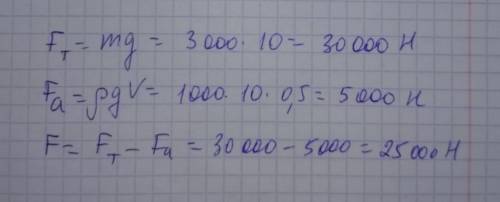 Fт = mg = 3000 · 10 = 30000 Н
Fa = ρgV = 1000 · 10 · 0,5 = 5000 Н
F = Fт - Fa = 30000 - 5000 = 25000 Н